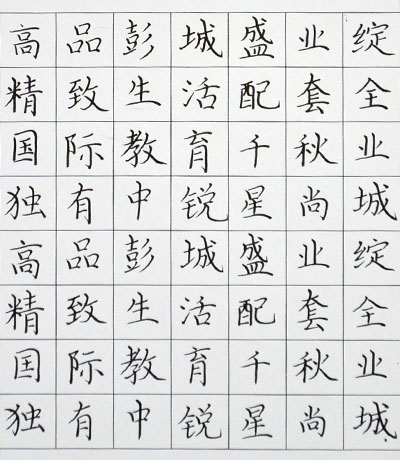 高品彭城盛业绽
精致生活配套全
国际教育千秋业
独有中锐星尚城
高品彭城盛业绽
精致生活配套全
国际教育千秋业
独有中锐星尚城